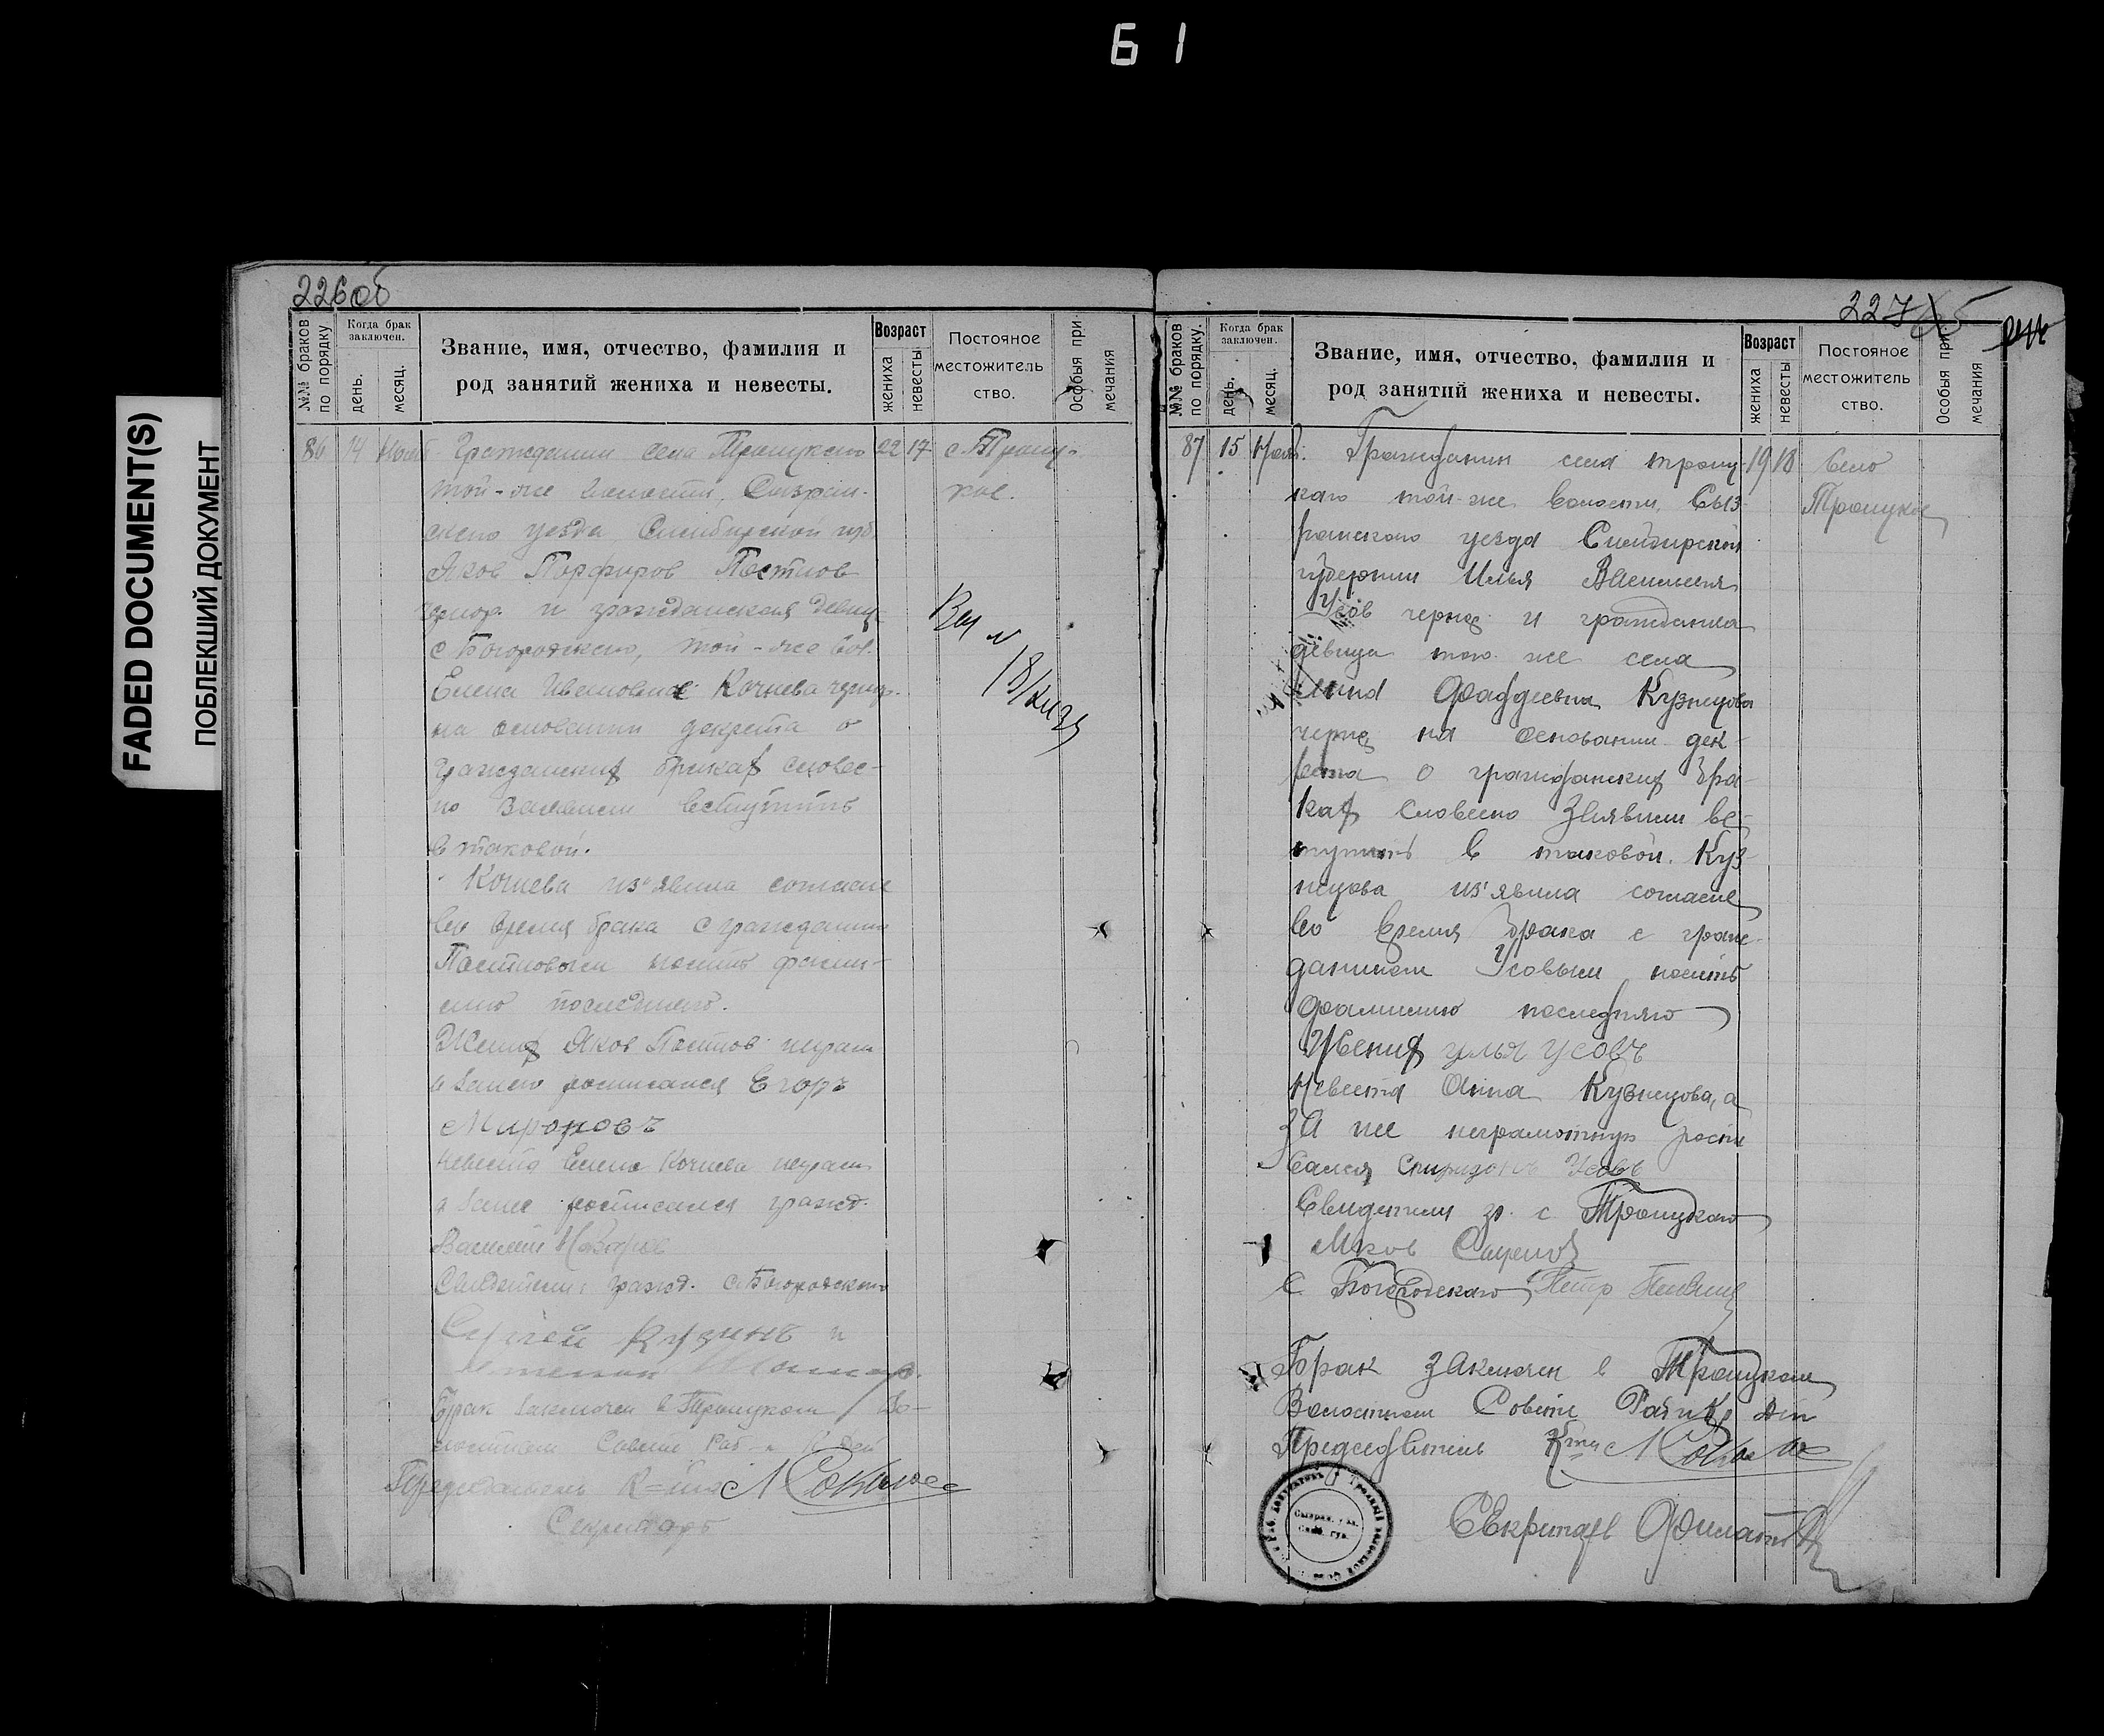 61
FADED DOCUMENT(S)
ПОБЛЕКШИЙ ДОКУМЕНТ
226об
№№ браков по порядку
Когда брак заключен.
день.
месяц.
Звание, имя, отчество, фамилия и
род занятий жениха и невесты.
Возраст
жениха
невесты
Постоянное
местожитель
ство.
Особыя при-
мечания
86 14 Нояб Гражданин села Троицкаго 22 17 с. Троиц-
той-же волости, Сызран- кое.
скаго уезда, Симбирской губ.
Яков Порфиров Постнов
и гражданская девиц
с. Богородскаго, той-же вол.
Елена Ивановна Кочнева
на основании декрета о
гражданских браках словес-
но заявили вступить
в таковой.
Кочнева из'явила согласие
во время брака с гражданин
Постновым носить фами-
лию последняго.
Жених Яков Постнов неграм
а занего росписался Егоръ
Мироновъ
Невеста Елена Кочнева неграм
а занее росписался гражд.
Василий
Свидетели: гражд. с. Богородскаго
Сергей Кузинъ и
Брак заключен в Троицком Во-
лостном Совете Раб и К Деп
Председатель
Секретарь
227
65
№№ браков по порядку.
Когда брак заключен.
день.
месяц.
Звание, имя, отчество, фамилия и
род занятий жениха и невесты.
Возраст
жениха
невесты
Постоянное
местожитель
ство.
Особыя при
мечания
87 15 Нояб. Гражданин села Троиц- 19 18 Село
каго той-же волости, Сыз- Троицкое
ранскаго уезда Симбирской
губернии Илья
Усов черно и гражданка
девица того же села
Анна Фаддеевна Кузнецова
черно на основании дек-
рета о гражданских бра-
ках словесно заявили вс-
тупить в таковой. Куз-
нецова из'явила согласие
во время брака с граж-
данином Усовым носить
фамилию последняго
Жених улья усовъ
Невеста Анна Кузнецова, а
за нее неграмотную роспи
сался Спиридонъ Усовъ
Свидетели гр. с. Троицкаго
Яков
с Богородскаго Петр
Брак заключен в Троицком
Волостном Совете Раб и Кр Деп
Председатель
Секретарь